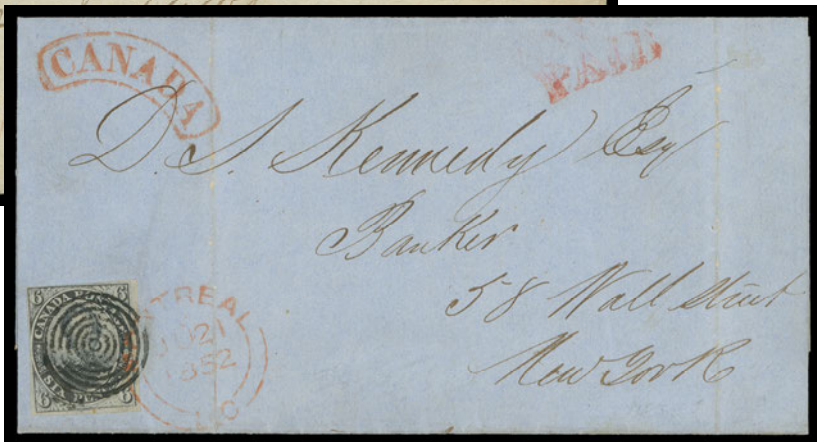 CANADA
PAID
D. S. Kennedy Esq
Banker
58 Wall Street
New York
6 6
CANADA POSTAGE
SIX PENCE
6 6
MONTREAL
21
1852
L.C